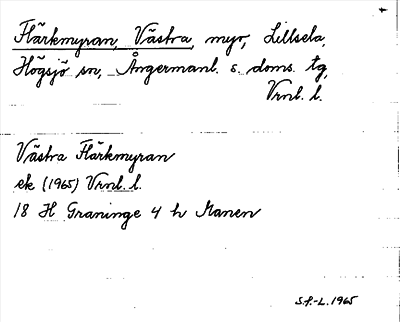 Flärkmyran, Västra, myr, Lillsela,
Högsjö sn, Ångermanl. s. doms. tg,
Vrnl. l.
Västra Flärkmyran
ek (1965) Vrnl. l.
18 H Graninge 4 h Manen
S.P.-L. 1965